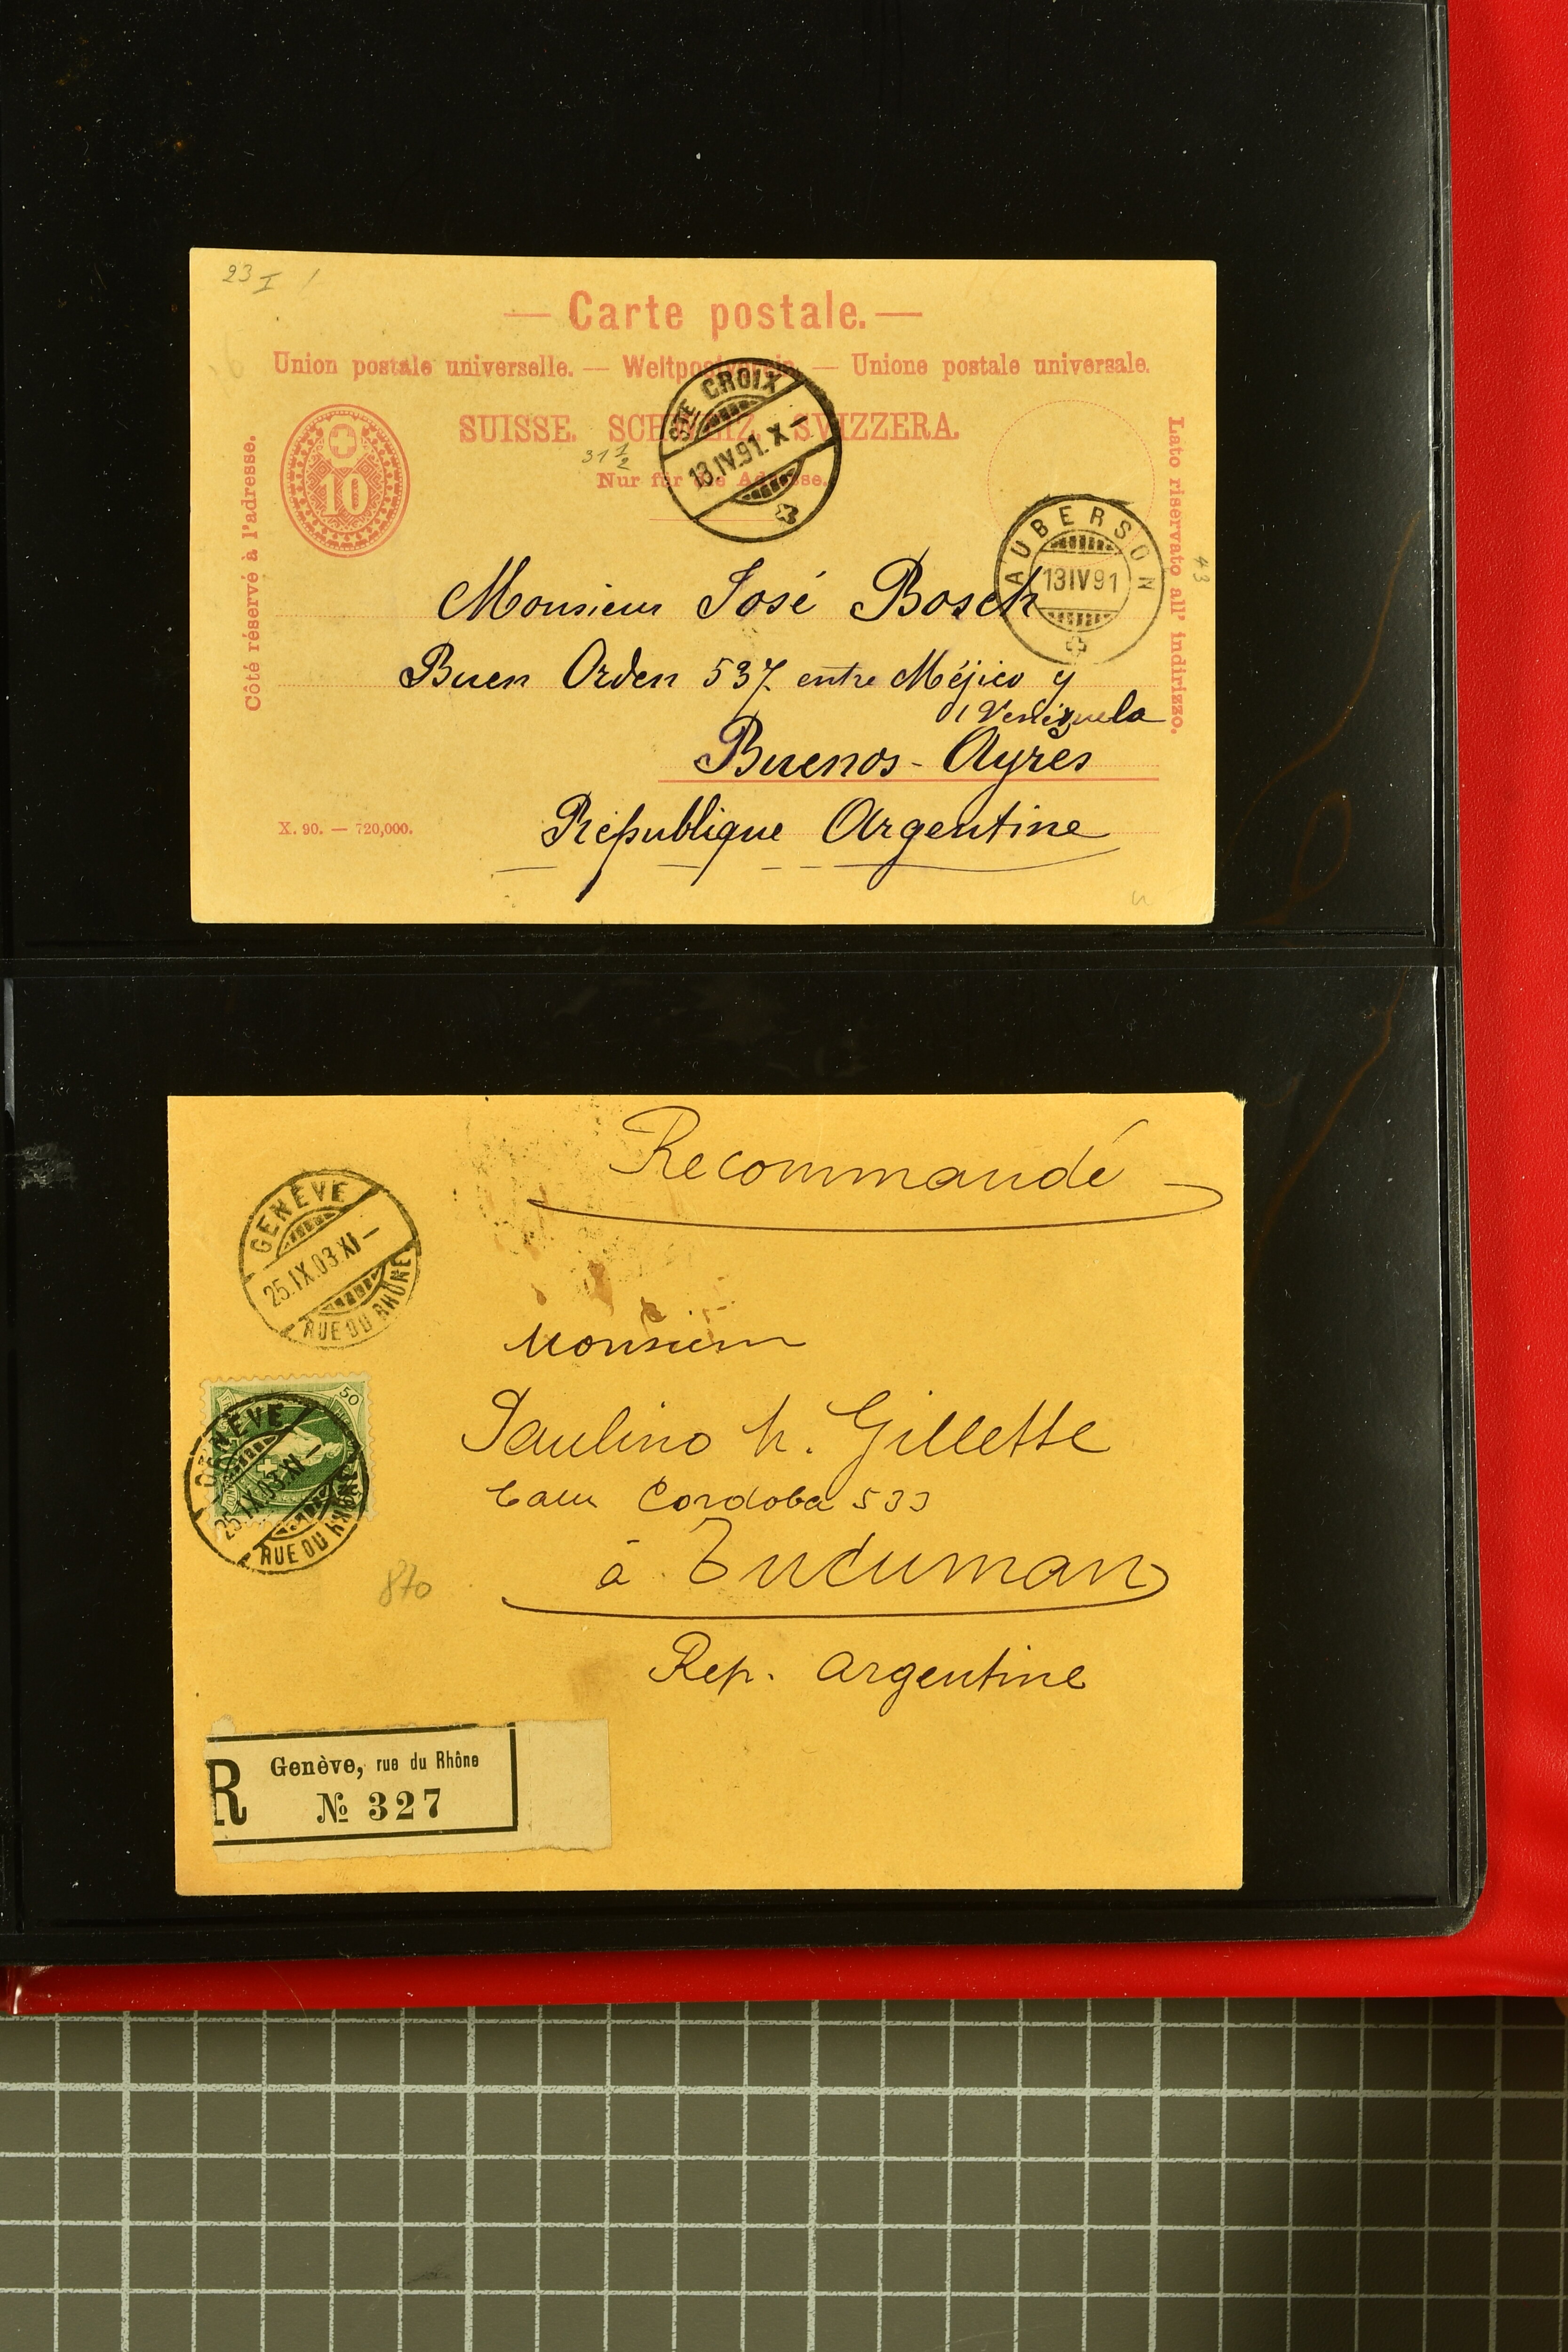 23 I
— Carte postale. —
Union postale universelle. — Weltpostverein. — Unione postale universale.
SUISSE. SCHWEIZ. SVIZZERA.
31 1/2
Nur für die Adresse.
Côté réservé à l'adresse.
Lato riservato all' indirizzo.
10
STE CROIX
13.IV.91. X –
AUBERSON
13 IV 91
43
Monsieur José Bosch
Buen Orden 537 entre Méjico y
Venezuela
Buenos-Ayres
République Argentine
X. 90. — 720,000.
Recommandé
GENÈVE
25.IX.03.XI –
RUE DU RHÔNE
Monsieur
Paulino h. Gillette
Cordoba 533
à Tucuman
Rep. Argentine
50
GENÈVE
25.IX.03.XI –
RUE DU RHÔNE
870
R
Genève, rue du Rhône
№ 327